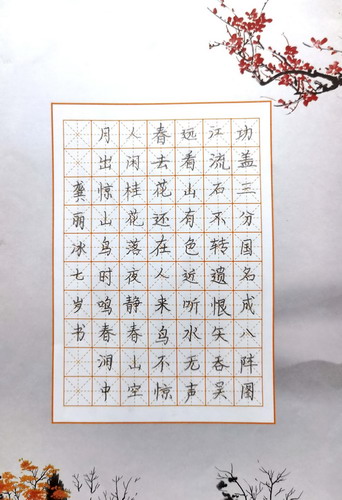 功盖三分国名成八阵图
江流石不转遗恨失吞吴
远看山有色近听水无声
春去花还在人来鸟不惊
人闲桂花落夜静春山空
月出惊山鸟时鸣春涧中
龚丽冰七岁书